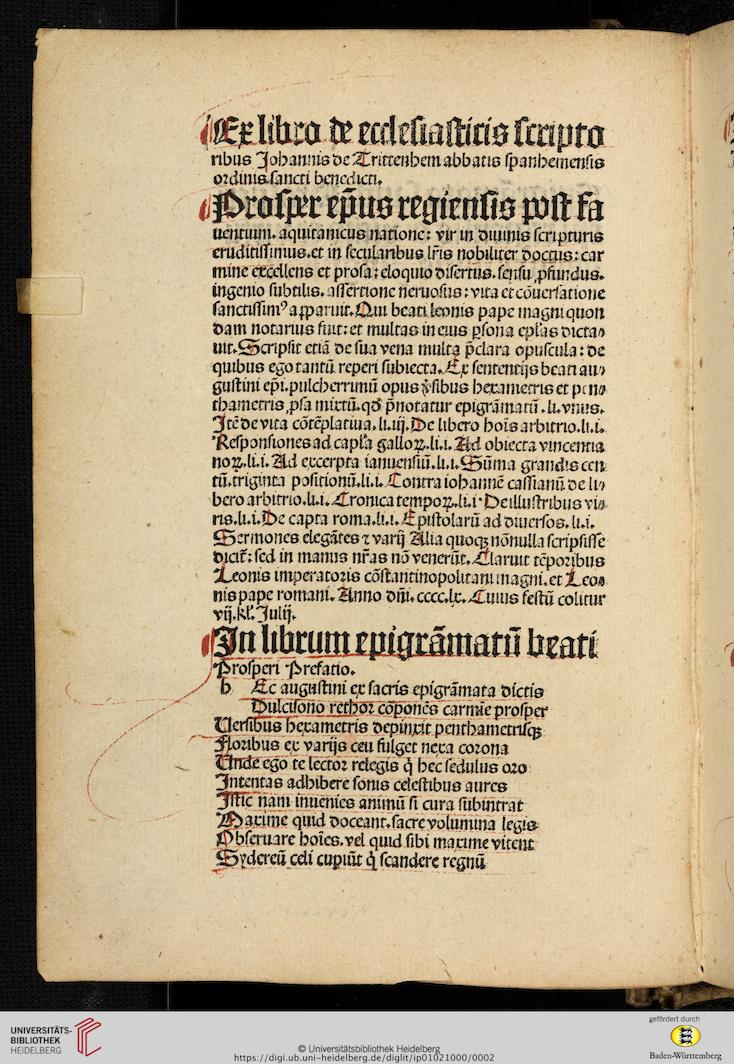 Ex libro de ecclesiasticis scripto
ribus Johannis de Trittenhem abbatis spanhemensis
ordinis sancti benedicti.
Prosper ep̃us regiensis post fa
uentium. aquitanicus natione: vir in diuinis scripturis
eruditissimus. et in secularibus lr̃is nobiliter doctus: car
mine excellens et prosa: eloquio disertus. sensu ꝓfundus.
ingenio subtilis. assertione neruosus: vita et cõuersatione
sanctissimꝰ apparuit. Qui beati leonis pape magni quon
dam notarius fuit: et multas in eius ꝑsona ep̃las dicta⸗
uit. Scripsit etiã de sua vena multa p̃clara opuscula: de
quibus ego tantũ reperi subiecta. Ex sententijs beati au⸗
gustini ep̃i. pulcherrimũ opus v̾sibus hexametris et pen⸗
thametris ꝓsa mixtũ. qd̃ p̃notatur epigrãmatũ . li. vnus.
Itẽ de vita cõtẽplatiua. li. iij. De libero hoĩs arbitrio. li. i.
Responsiones ad capl̃a galloꝝ. li. i. Ad obiecta vincentia
noꝝ. li. i. Ad excerpta ianuensiũ. li. i. Sũma grandis cen
tũ. triginta positionũ. li. i. Contra iohannẽ cassianũ de li⸗
bero arbitrio. li. i. Cronica tempoꝝ. li. i. De illustribus vi⸗
ris. li. i. De capta roma. li. i. Epistolarũ ad diuersos. li. i.
Sermones elegãtes ⁊ varij Alia quoqꝫ nõnulla scripsisse
dicit̃: sed in manus nr̃as nõ venerũt. Claruit tẽporibus
Leonis imperatoris cõstantinopolitani magni. et Leo⸗
nis pape romani. Anno dñi. cccc. lx. Cuius festũ colitur
vij. kl̃. Julij.
In librum epigrãmatũ beati
Prosperi Prefatio.
h Ec augustini ex sacris epigrãmata dictis
Dulcisono rethor cõponẽs carmĩe prosper
Uersibus hexametris depinxit penthametrisqꝫ
Floribus ex varijs ceu fulget nexa corona
Unde ego te lector relegis q̇ hec sedulus oro
Intentas adhibere sonis celestibus aures
Istic nam inuenies animũ si cura subintrat
Maxime quid doceant. sacre volumina legis
Obseruare hoĩes. vel quid sibi maxime vitent
Sydereũ celi cupiũt q̇ scandere regnũ
UNIVERSITÄTS-
BIBLIOTHEK
HEIDELBERG
© Universitätsbibliothek Heidelberg
https://digi.ub.uni-heidelberg.de/diglit/ip01021000/0002
gefördert durch
Baden-Württemberg